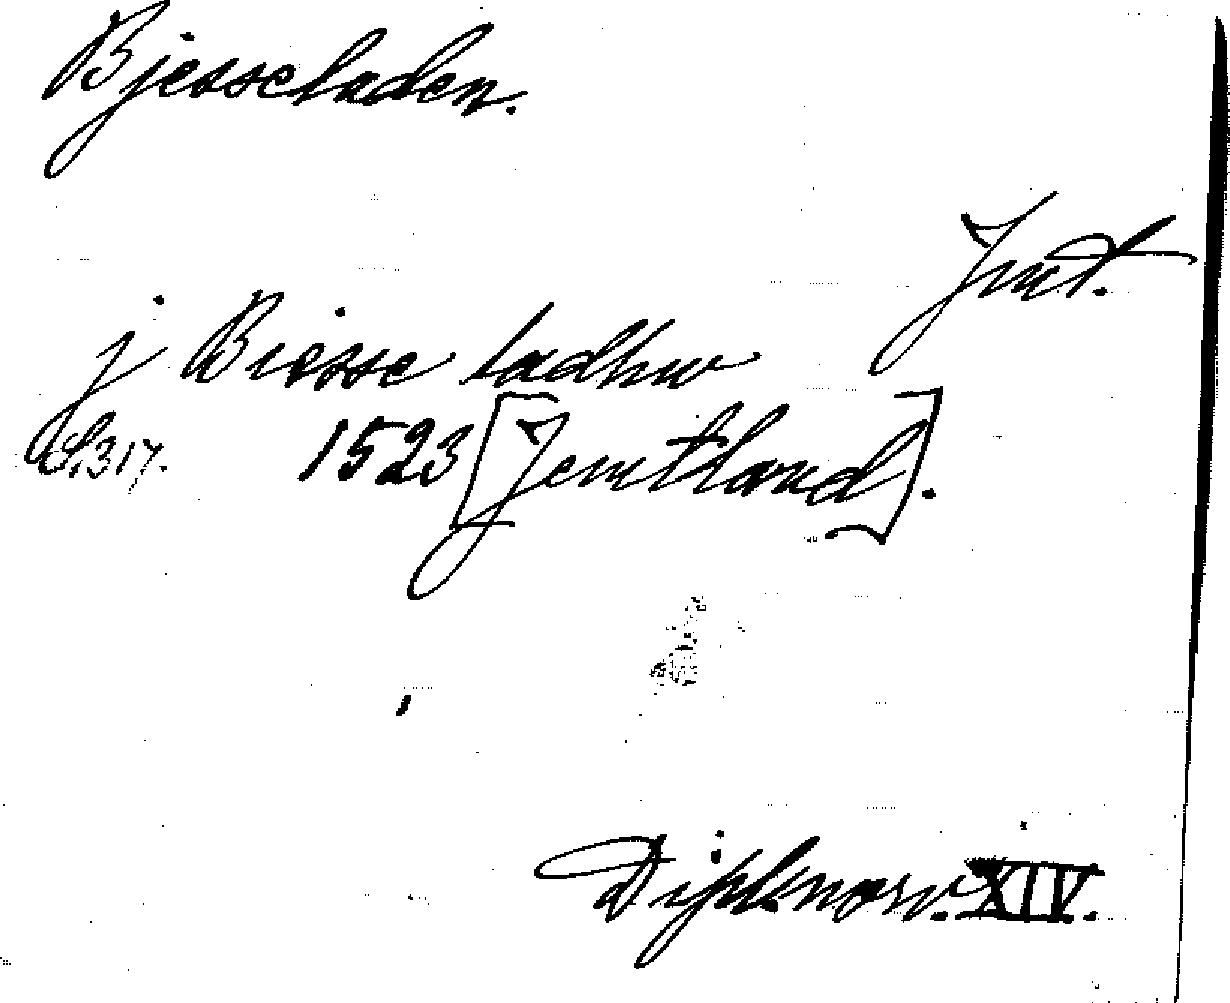 Bjesseladen.
Jmt.
j Biesse ladhw
S. 317. 1523 [Jemtland].
Dipl. norv. XIV.